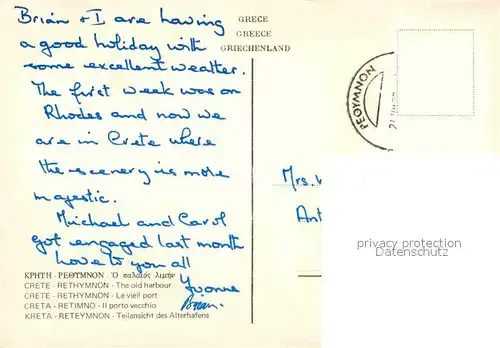 Brian + I are having
a good holiday with
some excellent weather.
The first week was on
Rhodes and now we
are in Crete where
the scenery is more
majestic.
Michael and Carol
got engaged last month
Love to you all
Yvonne
Brian.
GRECE
GREECE
GRIECHENLAND
ΚΡΗΤΗ - ΡΕΘΥΜΝΟΝ · Ὁ παλαιὸς λιμὴν
CRETE - RETHYMNON - The old harbour
CRETE - RETHYMNON - Le vieil port
CRETA - RETIMNO - Il porto vecchia
KRETA - RETEYMNON - Teilansicht des Alterhafens
ΡΕΘΥΜΝΟΝ
Mrs.
Ant
privacy protection
Datenschutz